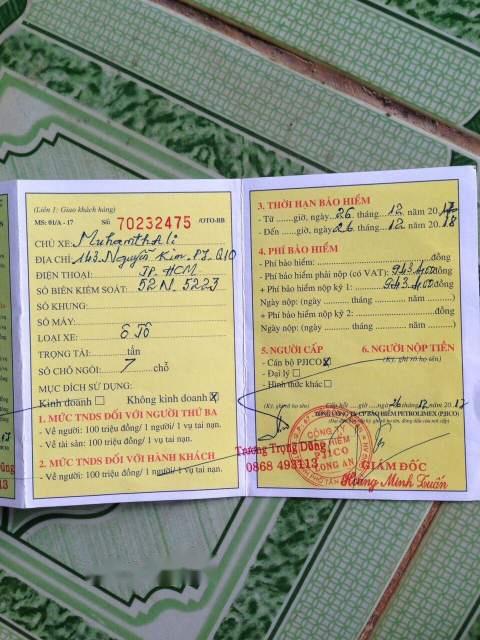 (Liên 1: Giao khách hàng)
MS: 01/A - 17 Số: 70232475 /OTO-BB
CHỦ XE: Muhamthali
ĐỊA CHỈ: 143 Nguyễn Kim. P7. Q10
ĐIỆN THOẠI: TP. HCM
SỐ BIỂN KIỂM SOÁT: 52N. 5223
SỐ KHUNG:
SỐ MÁY:
LOẠI XE: Ô Tô
TRỌNG TẢI: tấn
SỐ CHỖ NGỒI: 7 chỗ
MỤC ĐÍCH SỬ DỤNG:
Kinh doanh ☐ Không kinh doanh ☒
1. MỨC TNDS ĐỐI VỚI NGƯỜI THỨ BA
- Về người: 100 triệu đồng/ 1 người/ 1 vụ tai nạn.
- Về tài sản: 100 triệu đồng/ 1 vụ tai nạn.
2. MỨC TNDS ĐỐI VỚI HÀNH KHÁCH
- Về người: 100 triệu đồng/ 1 người/ 1 vụ tai nạn.
3. THỜI HẠN BẢO HIỂM
- Từ ......giờ, ngày 26 tháng 12 năm 2017
- Đến ......giờ, ngày 26 tháng 12 năm 2018
4. PHÍ BẢO HIỂM
- Phí bảo hiểm: đồng
- Phí bảo hiểm phải nộp (có VAT): 943.400 đồng
+ Phí bảo hiểm nộp kỳ 1: 943.400 đồng
Ngày nộp: (ngày ...... tháng ...... năm ......)
+ Phí bảo hiểm nộp kỳ 2: đồng
Ngày nộp: (ngày ...... tháng ...... năm ......)
5. NGƯỜI CẤP 6. NGƯỜI NỘP TIỀN
- Cán bộ PJICO ☒ (Ký, ghi rõ họ tên)
- Đại lý ☐
- Hình thức khác ☐
(Ký, ghi rõ họ tên) Cấp hồi ....giờ ....ngày 26/12/2017
TỔNG CÔNG TY CP BẢO HIỂM PETROLIMEX (PJICO)
CÔNG TY
BẢO HIỂM
PJICO
LONG AN
Trương Trọng Dũng
0868 493113
GIÁM ĐỐC
Hoàng Minh Tuấn